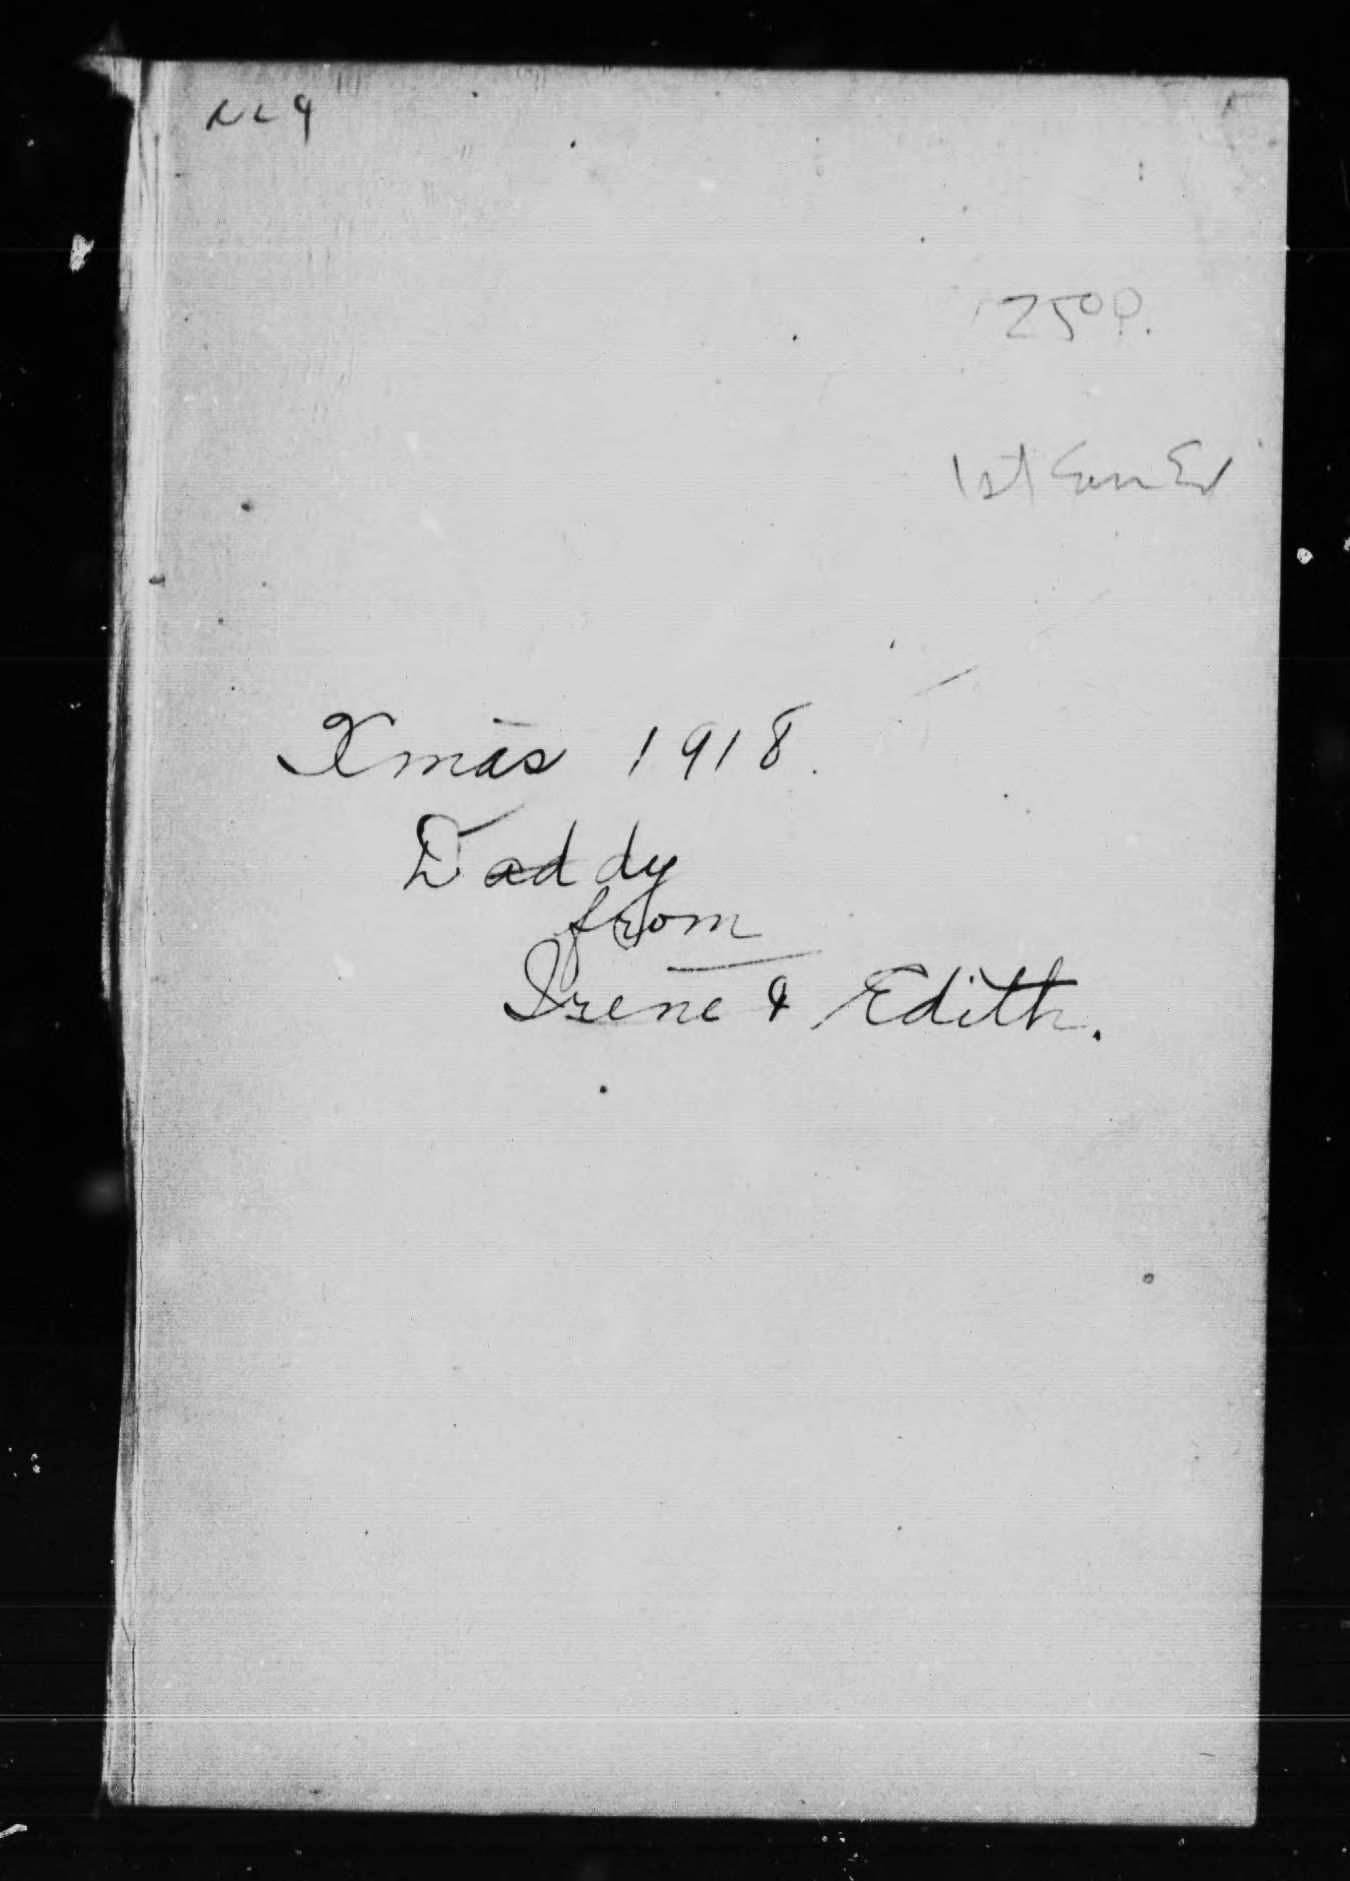 250 P.
1st Can Ed
Xmas 1918.
Daddy
from
Irene & Edith.